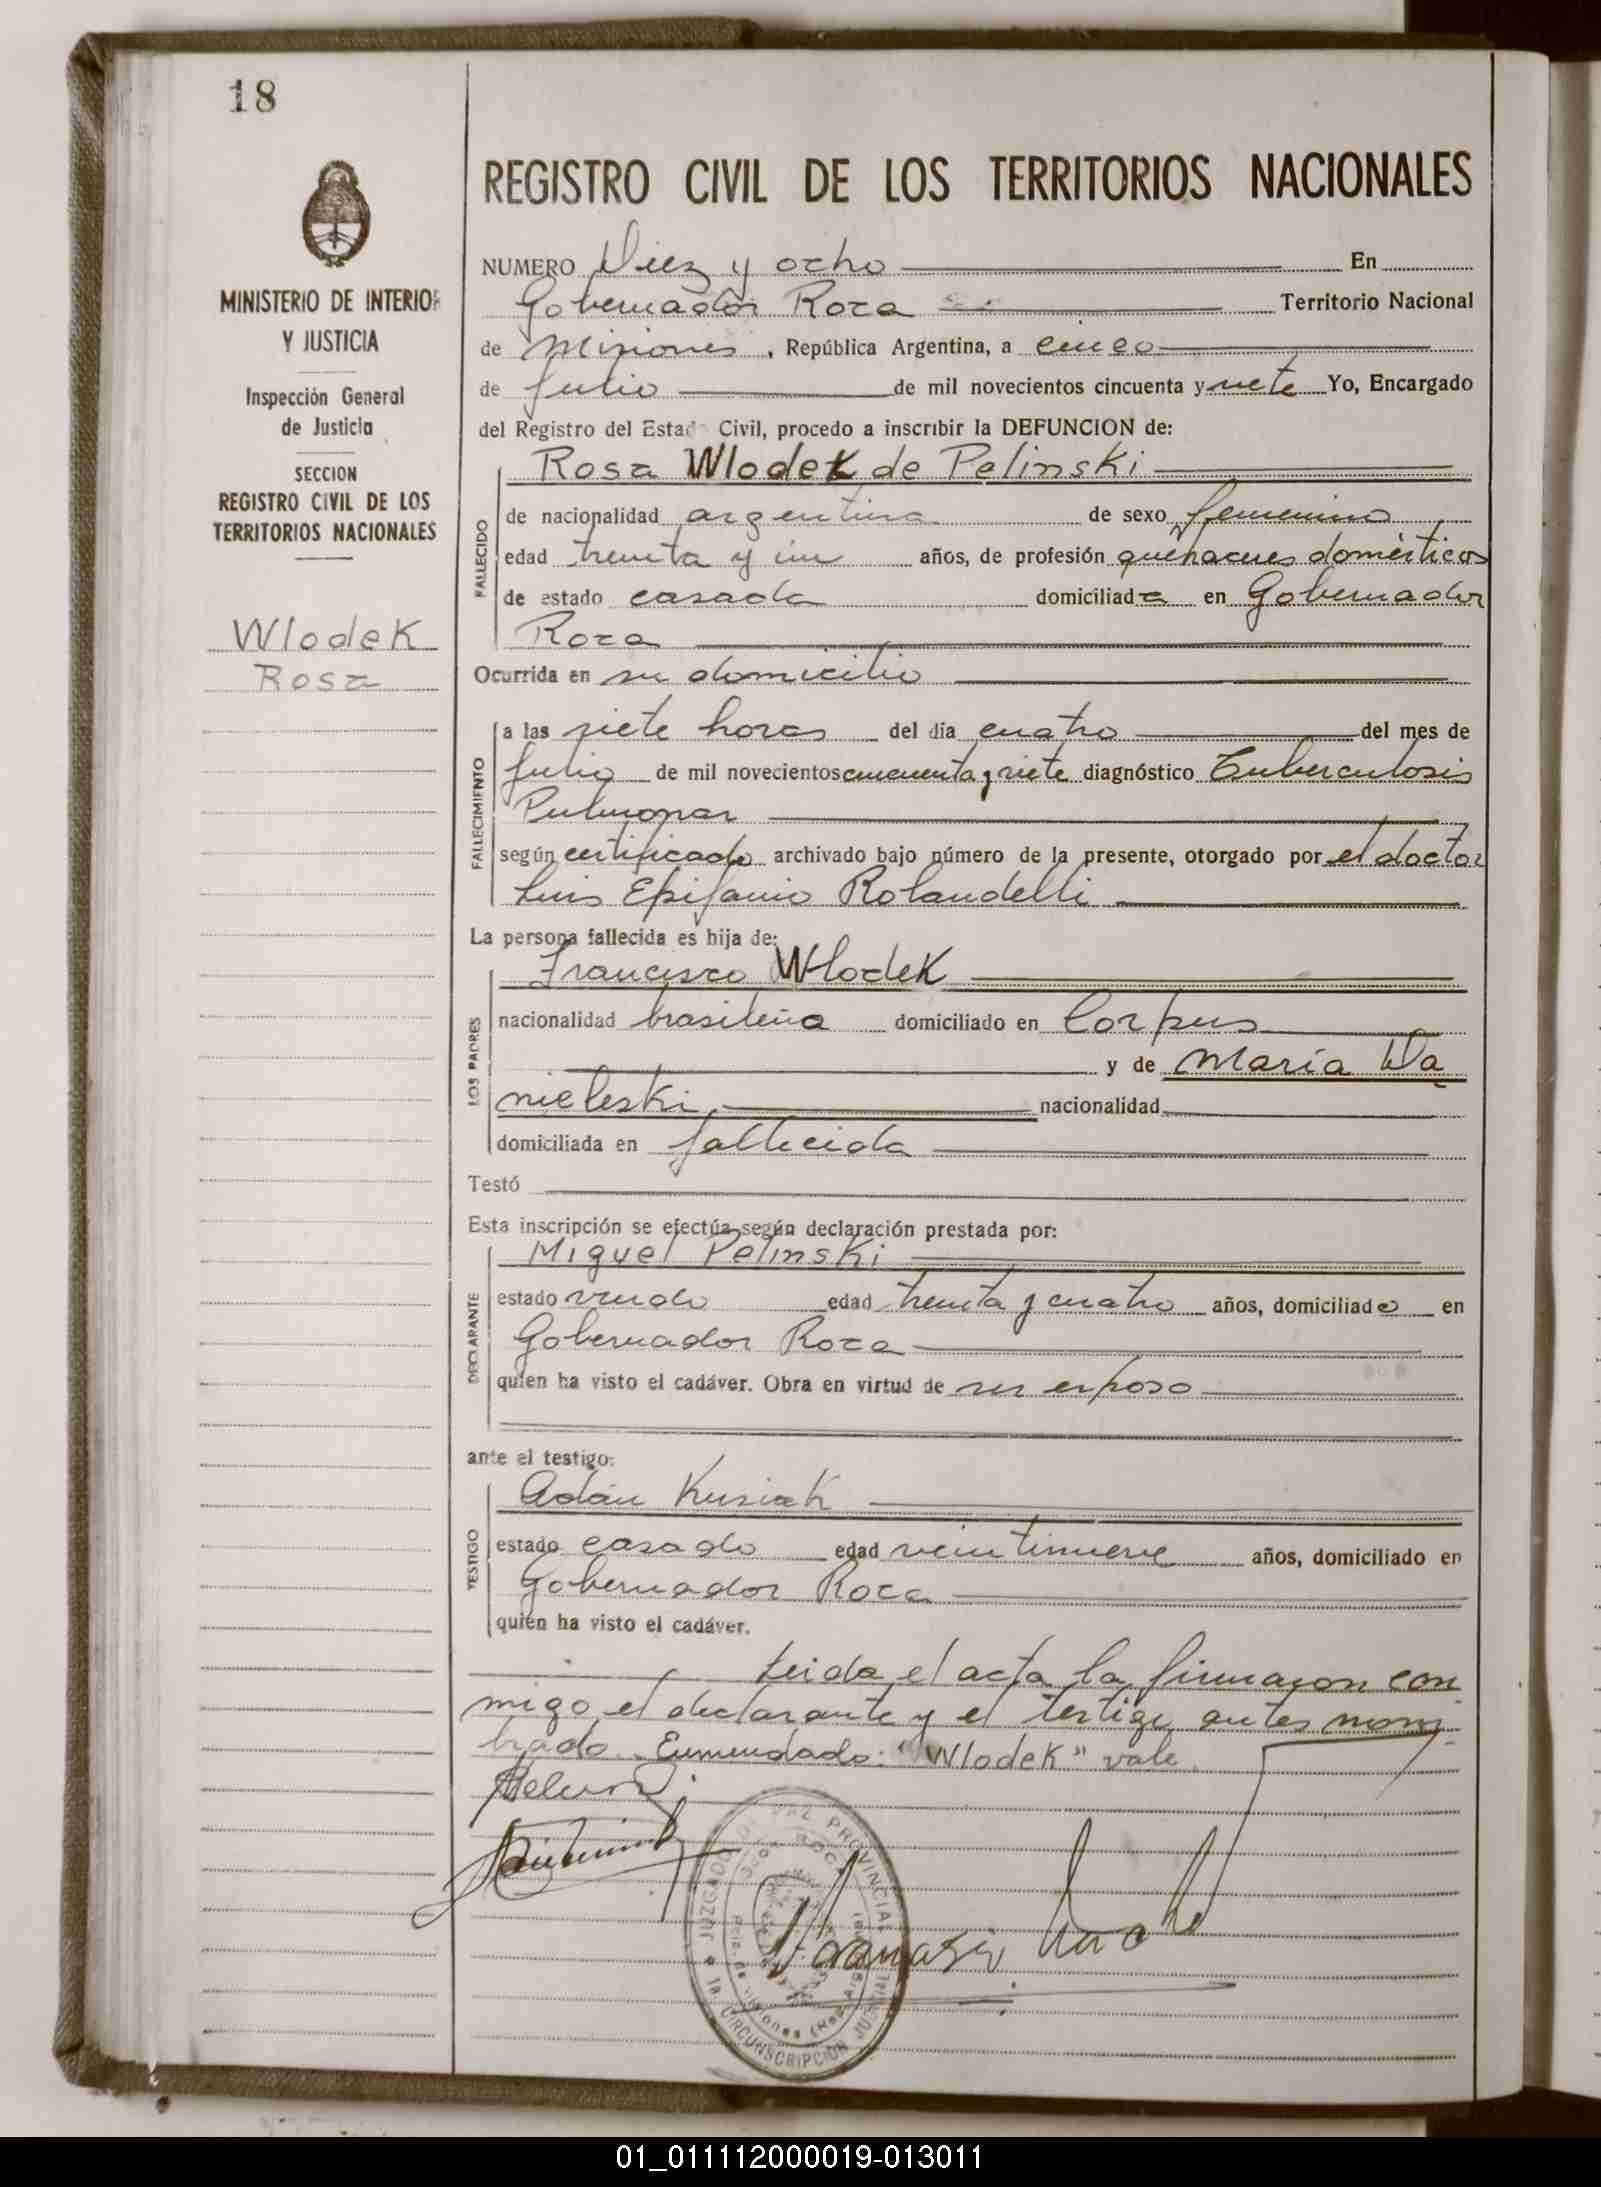 18
REGISTRO CIVIL DE LOS TERRITORIOS NACIONALES
MINISTERIO DE INTERIOR
Y JUSTICIA
Inspección General
de Justicia
SECCION
REGISTRO CIVIL DE LOS
TERRITORIOS NACIONALES
Wlodek
Rosa
NUMERO Diez y ocho En
Gobernador Roca Territorio Nacional
de Misiones, República Argentina, a cinco
de Julio de mil novecientos cincuenta y siete Yo, Encargado
del Registro del Estado Civil, procedo a inscribir la DEFUNCION de:
Rosa Wlodek de Pelinski
FALLECIDO
de nacionalidad argentina de sexo femenino
edad treinta y un años, de profesión quehaceres domésticos
de estado casada domiciliada en Gobernador
Roca
Ocurrida en su domicilio
FALLECIMIENTO
a las siete horas del día cuatro del mes de
Julio de mil novecientos cincuenta y siete diagnóstico Tuberculosis
Pulmonar
según certificado archivado bajo número de la presente, otorgado por el doctor
Luis Epifanio Rolandelli
La persona fallecida es hija de:
Francisco Wlodek
LOS PADRES
nacionalidad brasileña domiciliado en Corpus
y de María Da
nieleski, nacionalidad
domiciliada en fallecida
Testó
Esta inscripción se efectúa según declaración prestada por:
Miguel Pelinski
DECLARANTE
estado viudo edad treinta y cuatro años, domiciliado en
Gobernador Roca
quien ha visto el cadáver. Obra en virtud de ser esposo
ante el testigo:
Adán Kusiak
TESTIGO
estado casado edad veintinueve años, domiciliado en
Gobernador Roca
quien ha visto el cadáver.
Leida el acta la firmaron con
migo el declarante y el testigo antes nom
brado. Enmendado: "Wlodek" vale.
JUZGADO PROVINCIAL
1a. CIRCUNSCRIPCION JUDICIAL
01_011112000019-013011